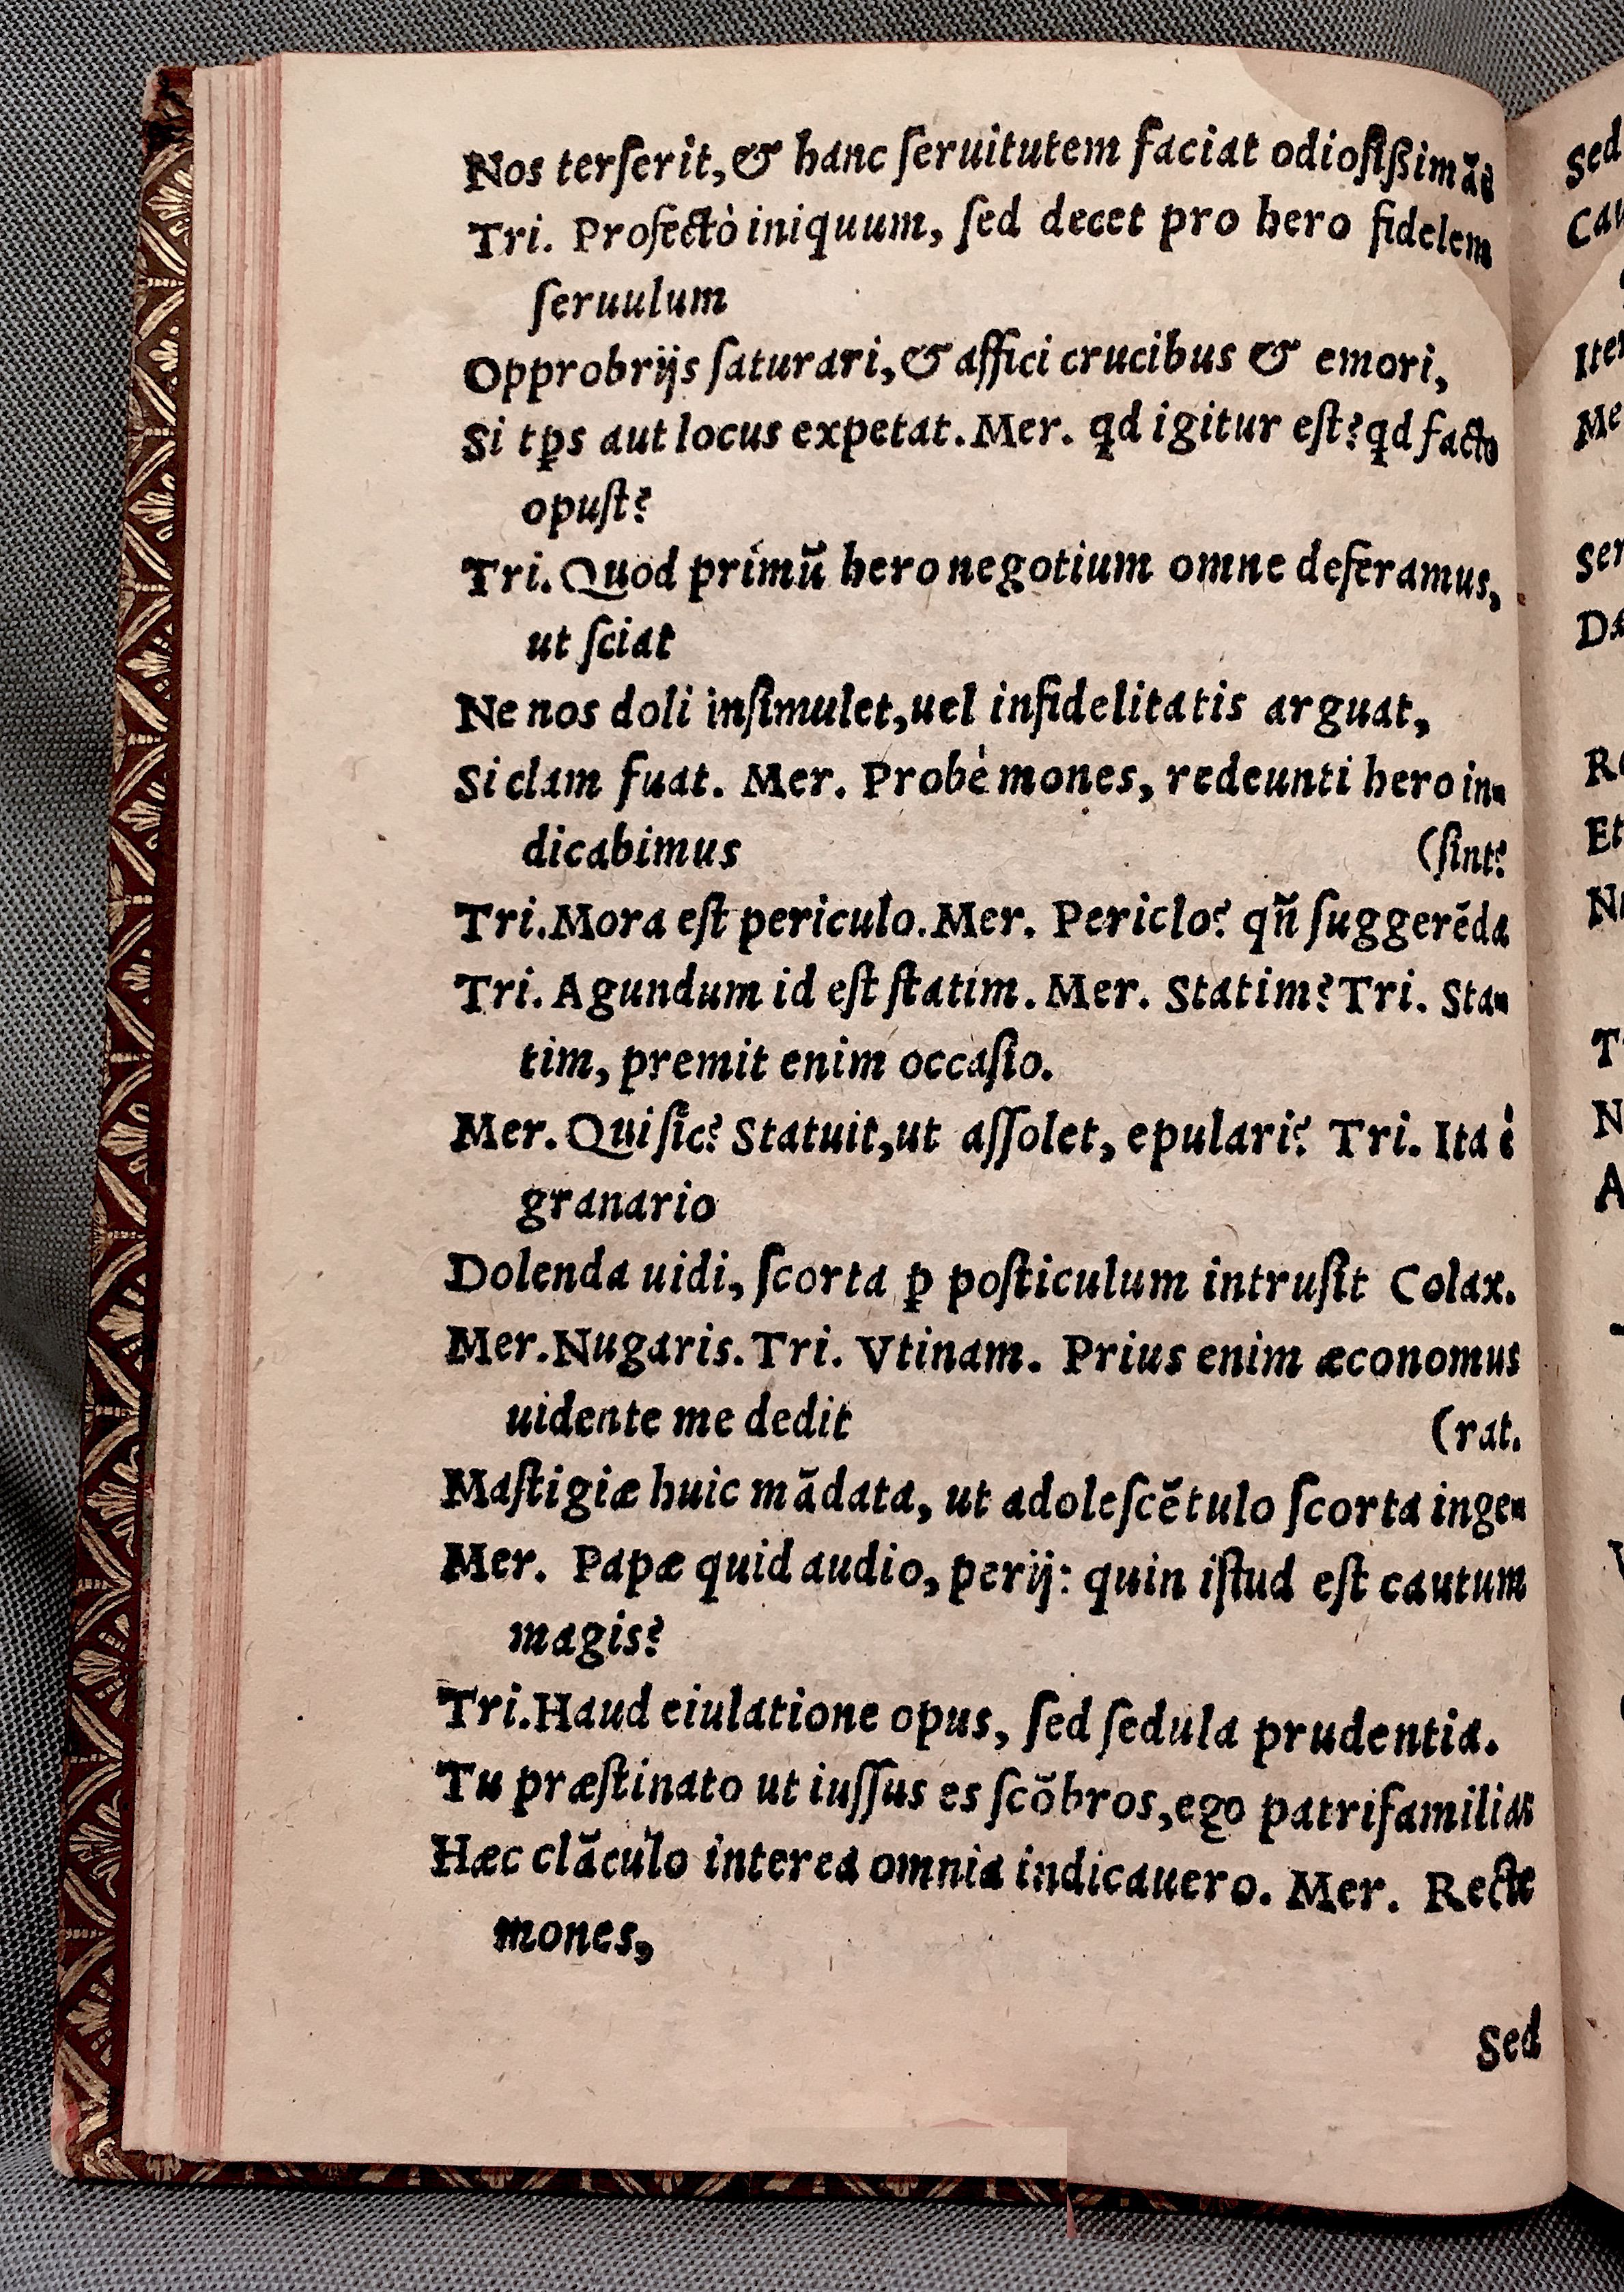 Nos terſerit, & hanc ſeruitutem faciat odioſiſsimã
Tri. Profectò iniquum, ſed decet pro hero fidelem
ſeruulum
Opprobrijs ſaturari, & affici crucibus & emori,
Si tꝑs aut locus expetat. Mer. qd igitur eſt? qd facto
opuſt?
Tri. Quod primũ hero negotium omne deferamus,
ut ſciat
Ne nos doli inſimulet, uel infidelitatis arguat,
Si clam fuat. Mer. Probè mones, redeunti hero in-
dicabimus (ſint?
Tri. Mora eſt periculo. Mer. Periclo? qñ ſuggerẽda
Tri. Agundum id eſt ſtatim. Mer. Statim? Tri. Sta-
tim, premit enim occaſio.
Mer. Qui ſic? Statuit, ut aſſolet, epulari? Tri. Ita è
granario
Dolenda uidi, ſcorta ꝑ poſticulum intruſit Colax.
Mer. Nugaris. Tri. Vtinam. Prius enim æconomus
uidente me dedit (rat.
Maſtigiæ huic mãdata, ut adoleſcẽtulo ſcorta inge-
Mer. Papæ quid audio, perij: quin iſtud eſt cautum
magis?
Tri. Haud eiulatione opus, ſed ſedula prudentia.
Tu præſtinato ut iuſſus es ſcõbros, ego patrifamilias
Hæc clãculo interea omnia indicauero. Mer. Recte
mones,
Sed